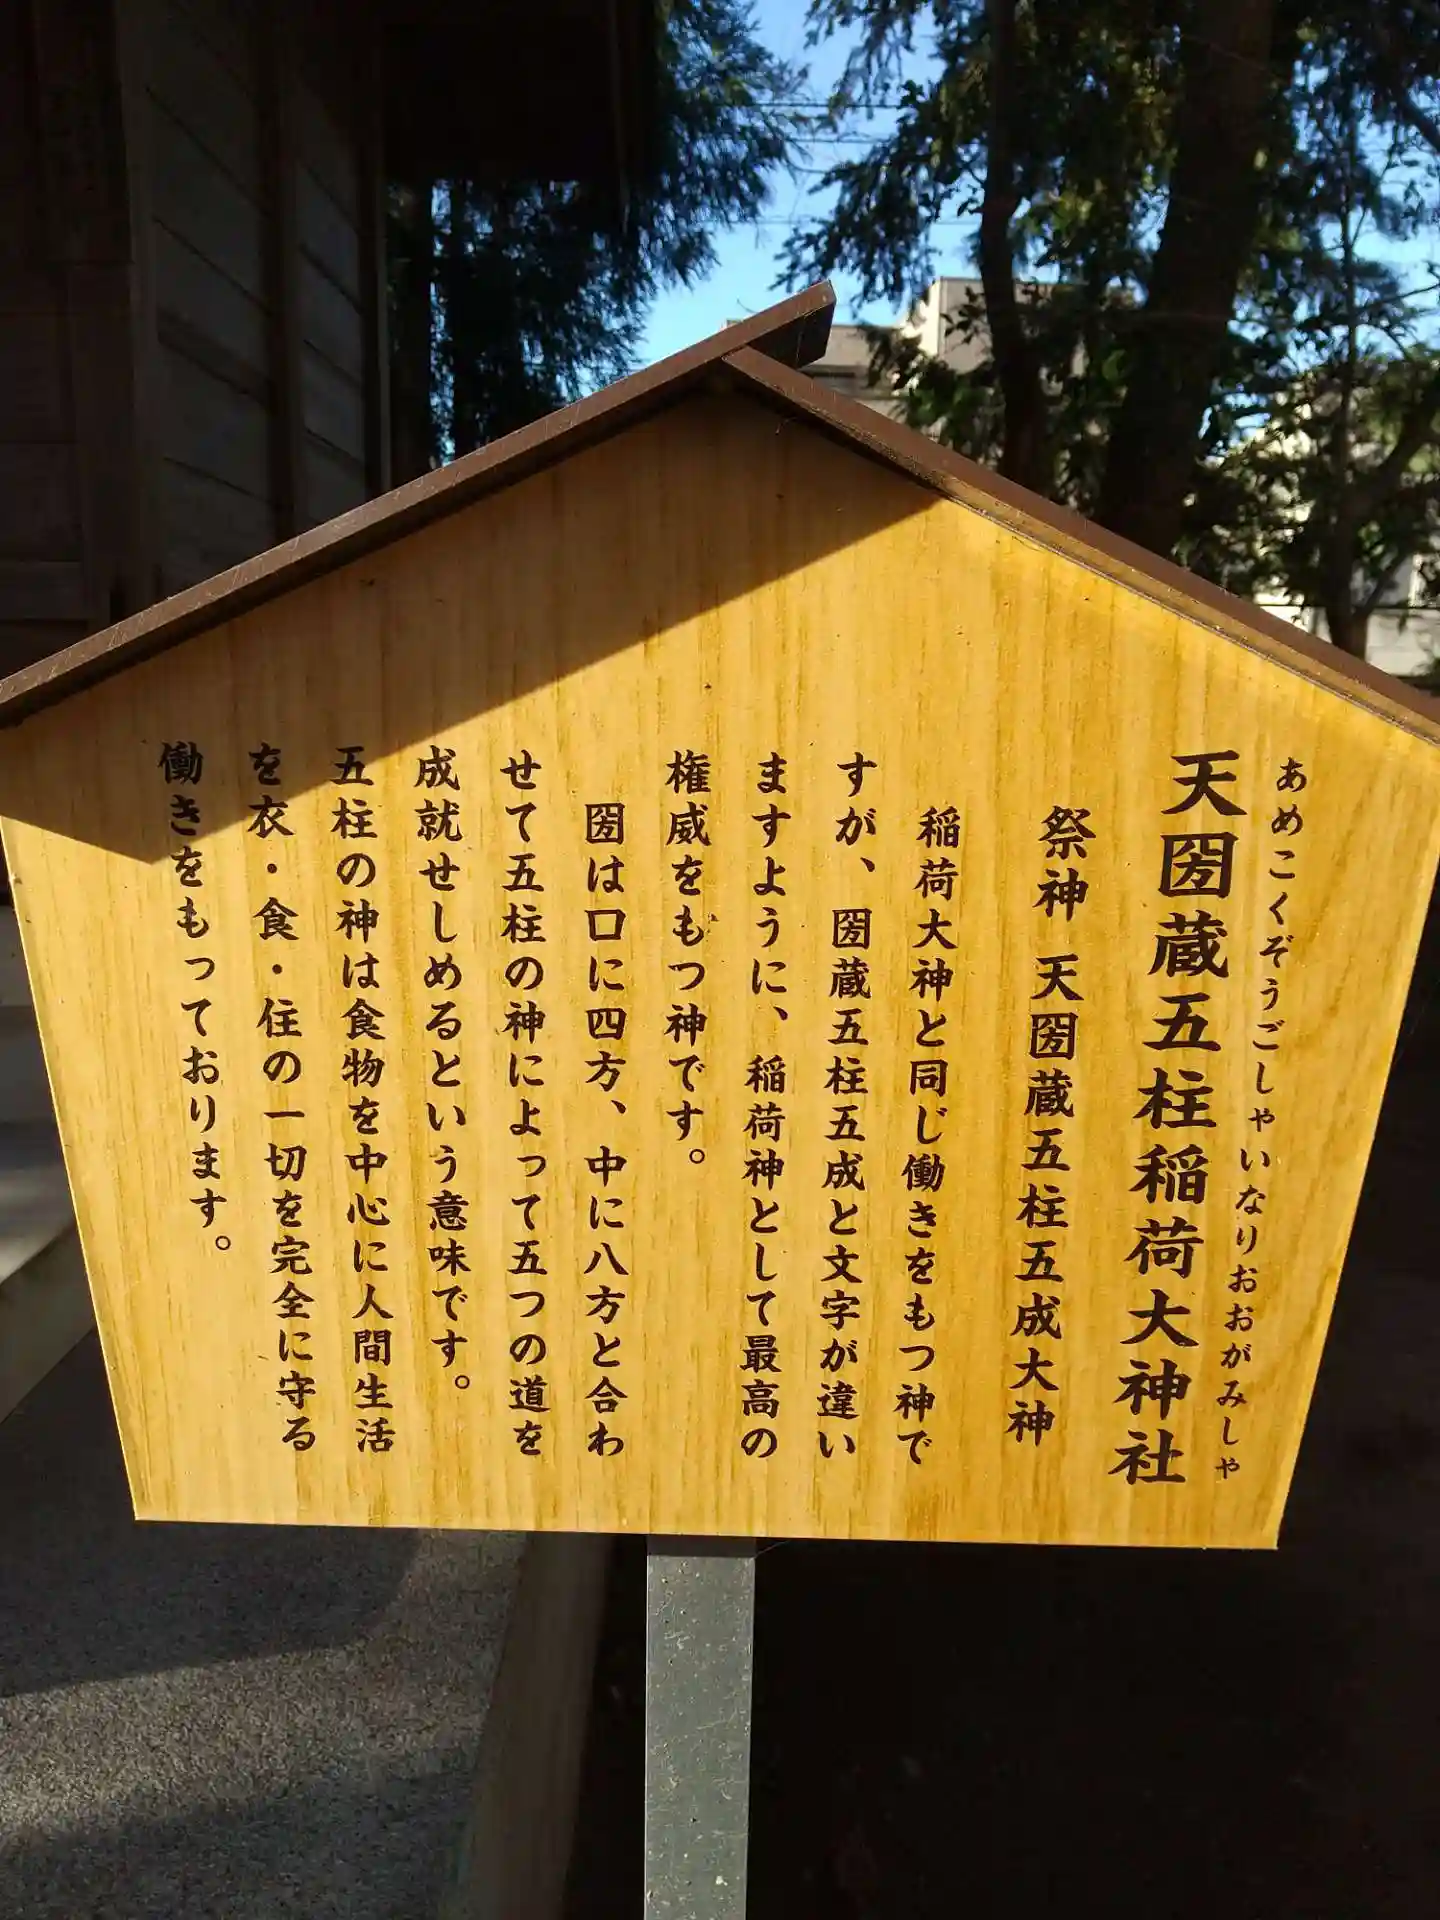 あめこくぞうごしゃいなりおおがみしゃ
天圀蔵五柱稲荷大神社
祭神 天圀蔵五柱五成大神
稲荷大神と同じ働きをもつ神で
すが、圀蔵五柱五成と文字が違い
ますように、稲荷神として最高の
権威をもつ神です。
圀は口に四方、中に八方と合わ
せて五柱の神によって五つの道を
成就せしめるという意味です。
五柱の神は食物を中心に人間生活
を衣・食・住の一切を完全に守る
働きをもっております。